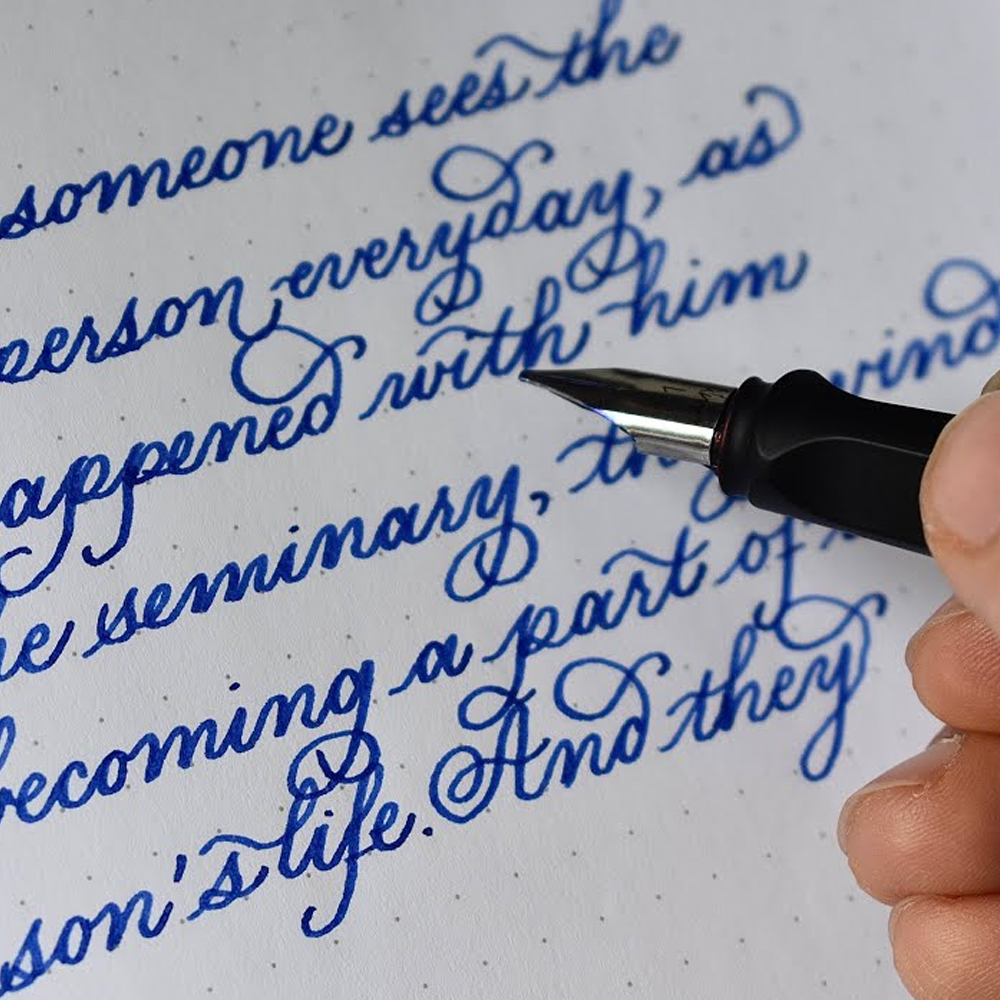 someone sees the
person everyday, as
happened with him
he seminary, th wind
becoming a part of
son's life. And they